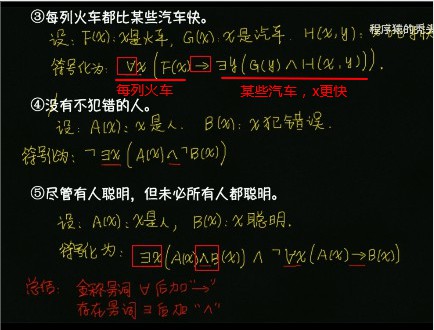 ③每列火车都比某些汽车快。
程序猿的秃头
设：F(x)：x是火车，G(x)：x是汽车．H(x,y)：x
符号化为：∀x(F(x)→∃y(G(y)∧H(x,y))．
每列火车 某些汽车，x更快
④没有不犯错的人。
设：A(x)：x是人．B(x)：x犯错误．
符号化为：¬∃x(A(x)∧¬B(x))
⑤尽管有人聪明，但未必所有人都聪明。
设：A(x)：x是人，B(x)：x聪明．
符号化为：∃x(A(x)∧B(x))∧¬∀x(A(x)→B(x))
总结：全称量词∀后加"→"
存在量词∃后加"∧"